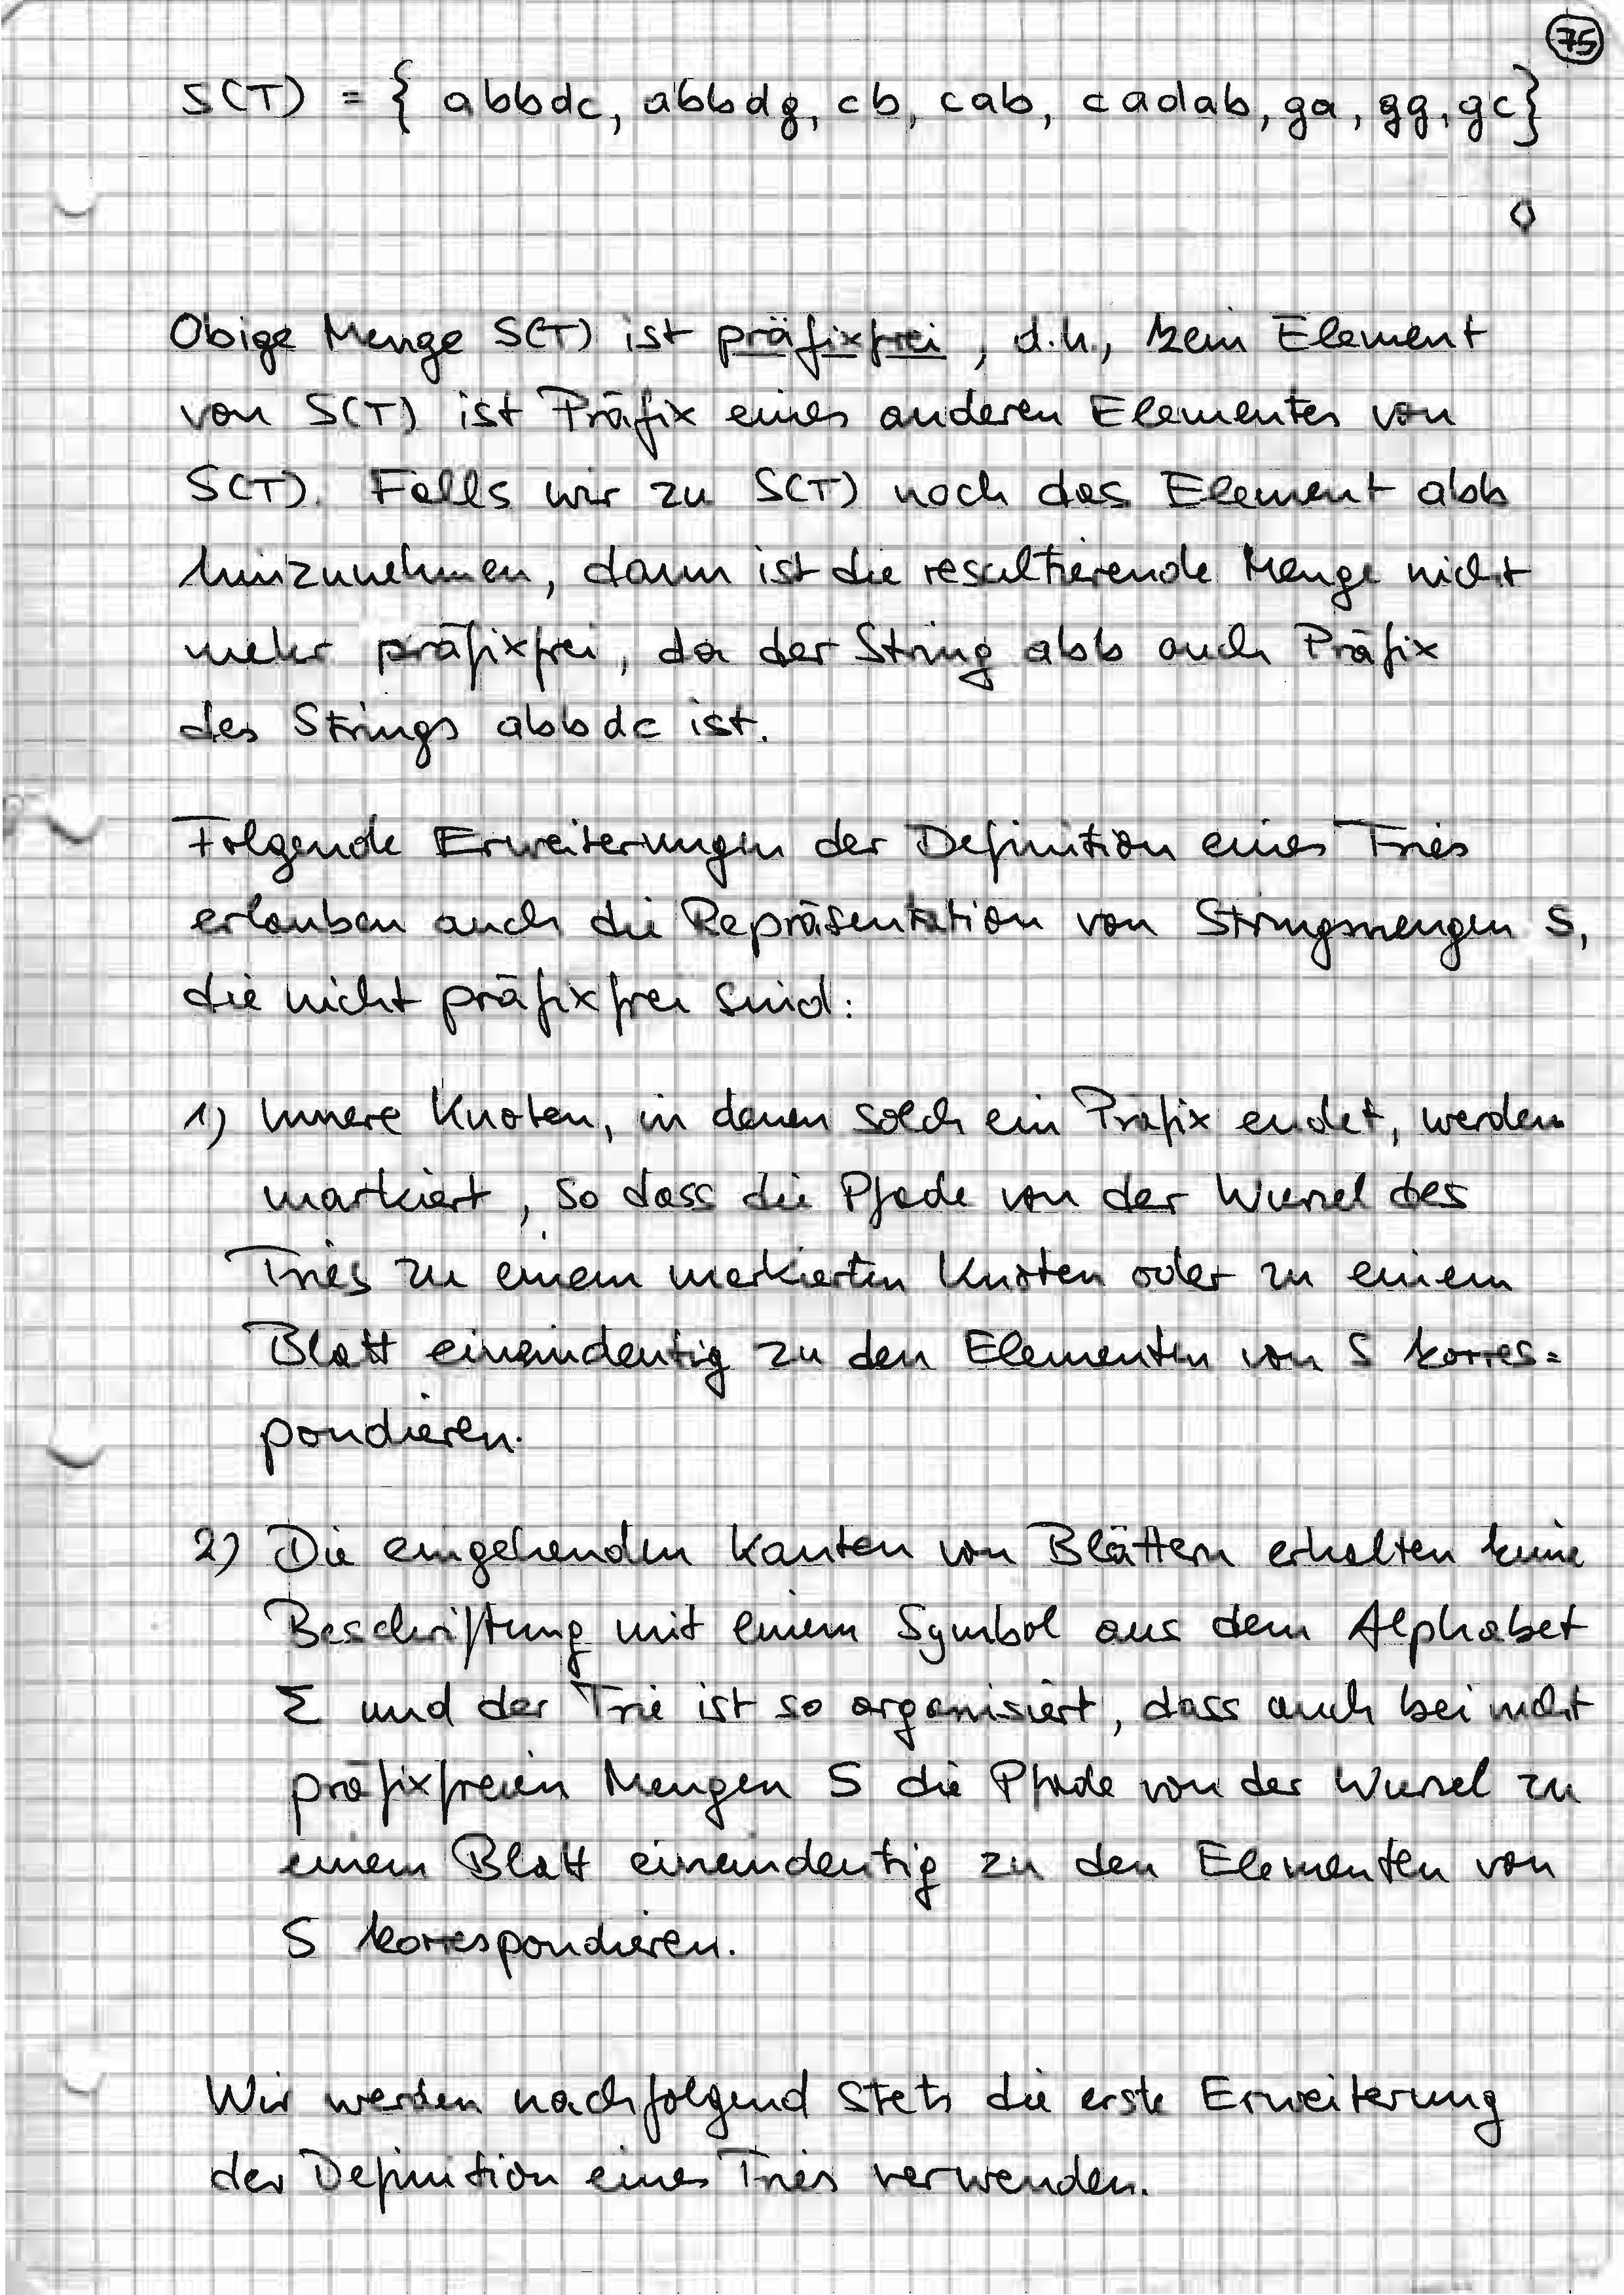 75
S(T) = { abbdc, abbdg, cb, cab, cadab, ga, gg, gc}
◊
Obige Menge S(T) ist präfixfrei, d.h., kein Element
von S(T) ist Präfix eines anderen Elementes von
S(T). Falls wir zu S(T) noch das Element abb
hinzunehmen, dann ist die resultierende Menge nicht
mehr präfixfrei, da der String abb auch Präfix
des Strings abbdc ist.
Folgende Erweiterungen der Definition eines Tries
erlauben auch die Repräsentation von Stringmengen S,
die nicht präfixfrei sind:
1) Innere Knoten, in denen solch ein Präfix endet, werden
markiert, so dass die Pfade von der Wurzel des
Tries zu einem markierten Knoten oder zu einem
Blatt eineindeutig zu den Elementen von S korres=
pondieren.
2) Die eingehenden Kanten von Blättern erhalten keine
Beschriftung mit einem Symbol aus dem Alphabet
Σ und der Trie ist so organisiert, dass auch bei nicht
präfixfreien Mengen S die Pfade von der Wurzel zu
einem Blatt eineindeutig zu den Elementen von
S korrespondieren.
Wir werden nachfolgend stets die erste Erweiterung
der Definition eines Tries verwenden.